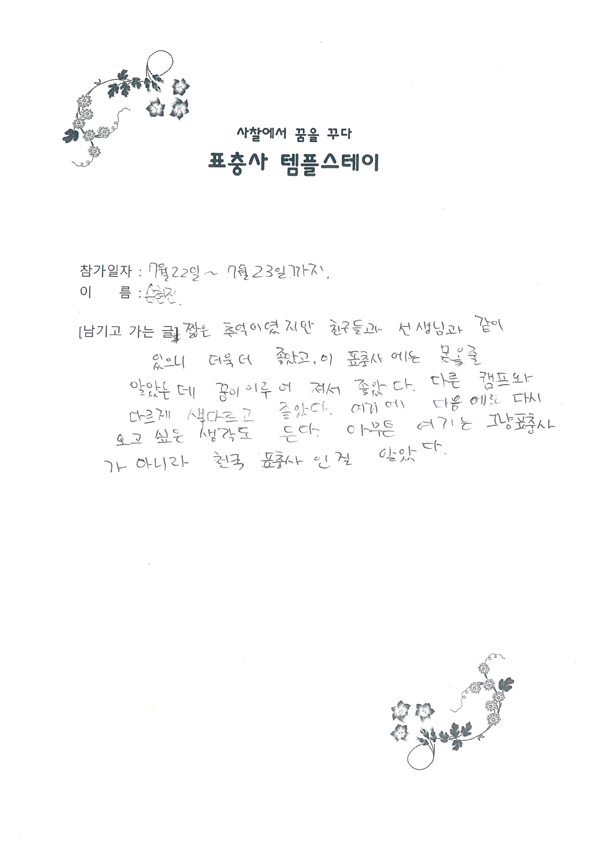 사찰에서 꿈을 꾸다
표충사 템플스테이
참가일자 : 7월22일~ 7월23일까지.
이 름 : 손현진.
[남기고 가는 글] 짧은 추억이였지만 친구들과 선생님과 같이
있으니 더욱 더 좋았고, 이 표충사에는 못올줄
알았는데 꿈이이루어 져서 좋았다. 다른 캠프와
다르게 색다르고 좋았다. 여기에 다음에도 다시
오고 싶은 생각도 든다. 아무튼 여기는 그냥표충사
가 아니라 천국 표충사 인걸 알았다.